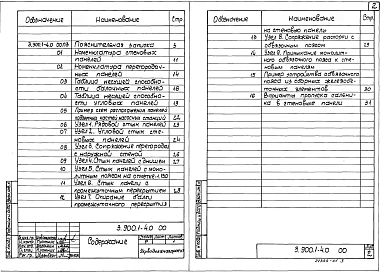 Обозначение Наименование Стр.
3.900.1-4.0 00ПЗ Пояснительная записка 5
01 Номенклатура стеновых
панелей 11
02 Номенклатура перегородоч-
ных панелей 14
03 Таблица несущей способно-
сти балочных панелей 18
04 Таблица несущей способно-
сти угловых панелей 19
05 Пример схем расположения панелей
22
06 Узел 1. Рядовой стык панелей 23
07 Узел 2. Угловой стык сте-
новых панелей 24
08 Сопряжение перегородки
с наружной стеной 26
09 Узел 4. Стык панели с днищем 27
10 Узел 5. Стык панелей с моно-
литным поясом на отметке
11 Узел 6. Стык панели с
промежуточным перекрытием 28
12 Узел 7. Опирание балки
промежуточного перекрытия
3.900.1-4.0 00
Содержание
2
Обозначение Наименование Стр.
на стеновую панель
13 Узел 8. Сопряжение распорки с
обвязочным поясом 29
14 Примыкание монолит-
ного обвязочного пояса к сте-
новым панелям
15 Пример устройства обвязочного
пояса из сборных железобе-
тонных элементов 30
16 Варианты пропуска сальни-
ка в стеновые панели 31
3.900.1-4.0 00
2